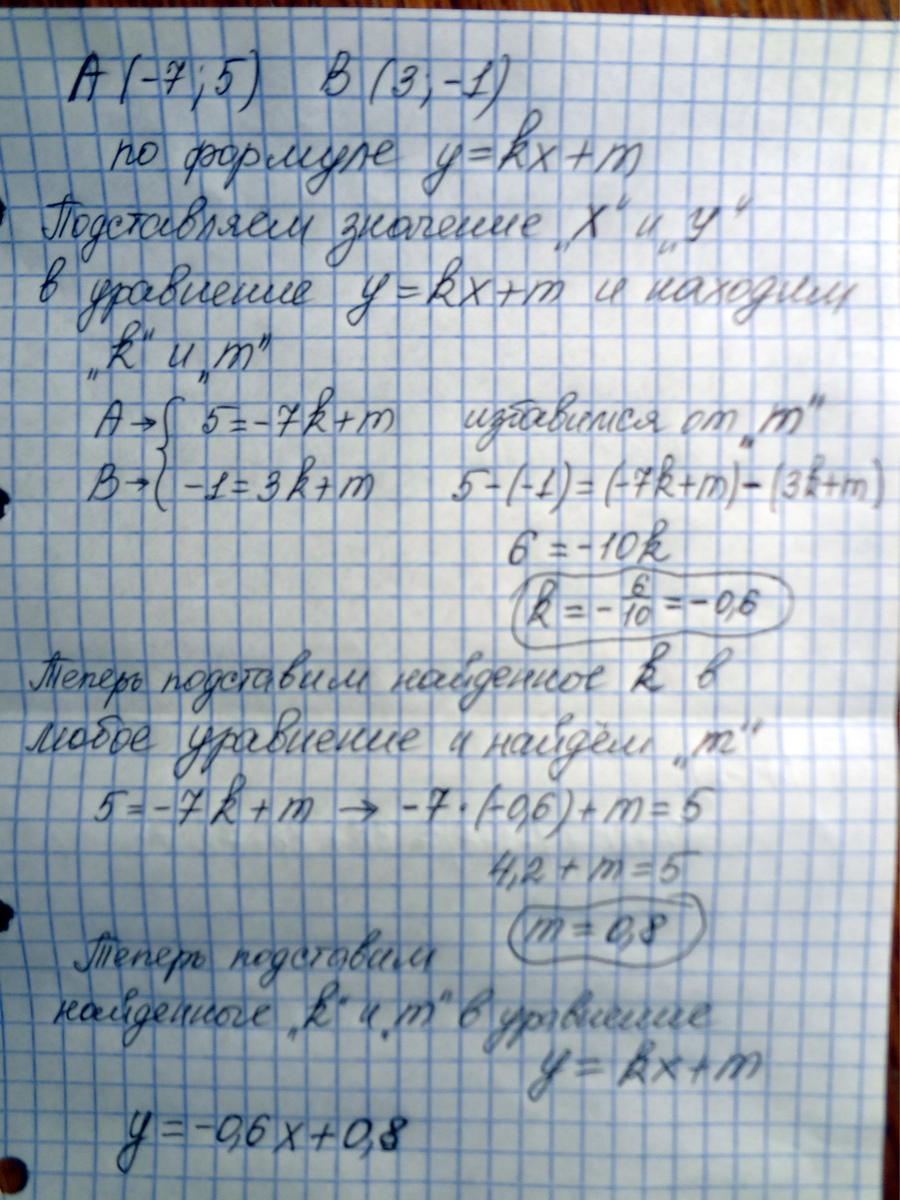 A (-7; 5) B (3; -1)
по формуле y = kx + m
Подставляем значение „x“ и „y“
в уравнение y = kx + m и находим
„k“ и „m“
A → { 5 = -7k + m избавимся от „m“
B → { -1 = 3k + m 5 - (-1) = (-7k + m) - (3k + m)
6 = -10k
k = - 6/10 = -0,6
Теперь подставим найденное k в
любое уравнение и найдём „m“
5 = -7k + m → -7 · (-0,6) + m = 5
4,2 + m = 5
m = 0,8
Теперь подставим
найденные „k“ и „m“ в уравнение
y = kx + m
y = -0,6x + 0,8